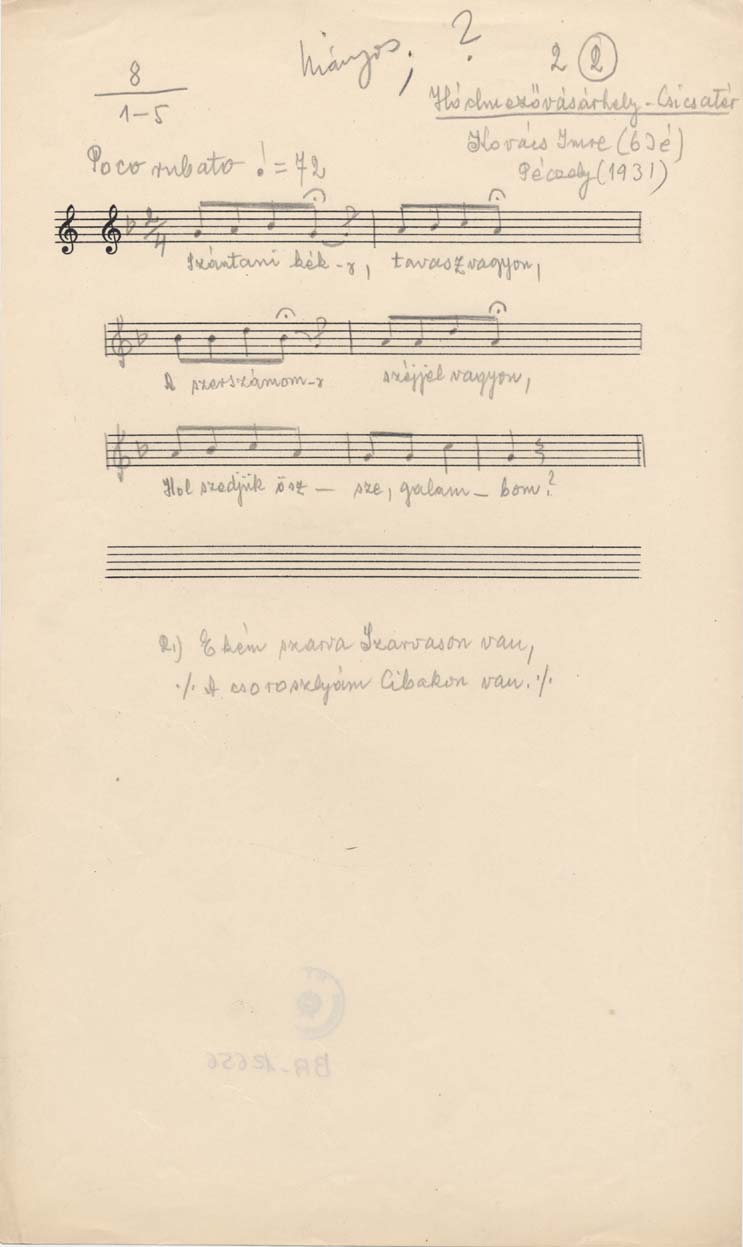 Hiányos; ?
2 2
8
1–5
Hódmezővásárhely - Csicsatér
Kovács Imre (63é)
Péczely (1931)
Poco rubato ♩ = 72
2/4
Szántani kék-r, tavasz vagyon,
A szerszámom-r széjjel vagyon,
Hol szedjük ösz – sze, galam – bom?
2.) Ekém szarva Szarvason van,
·/· A csoroszlyám Cibakon van. ·/·
BR-12656